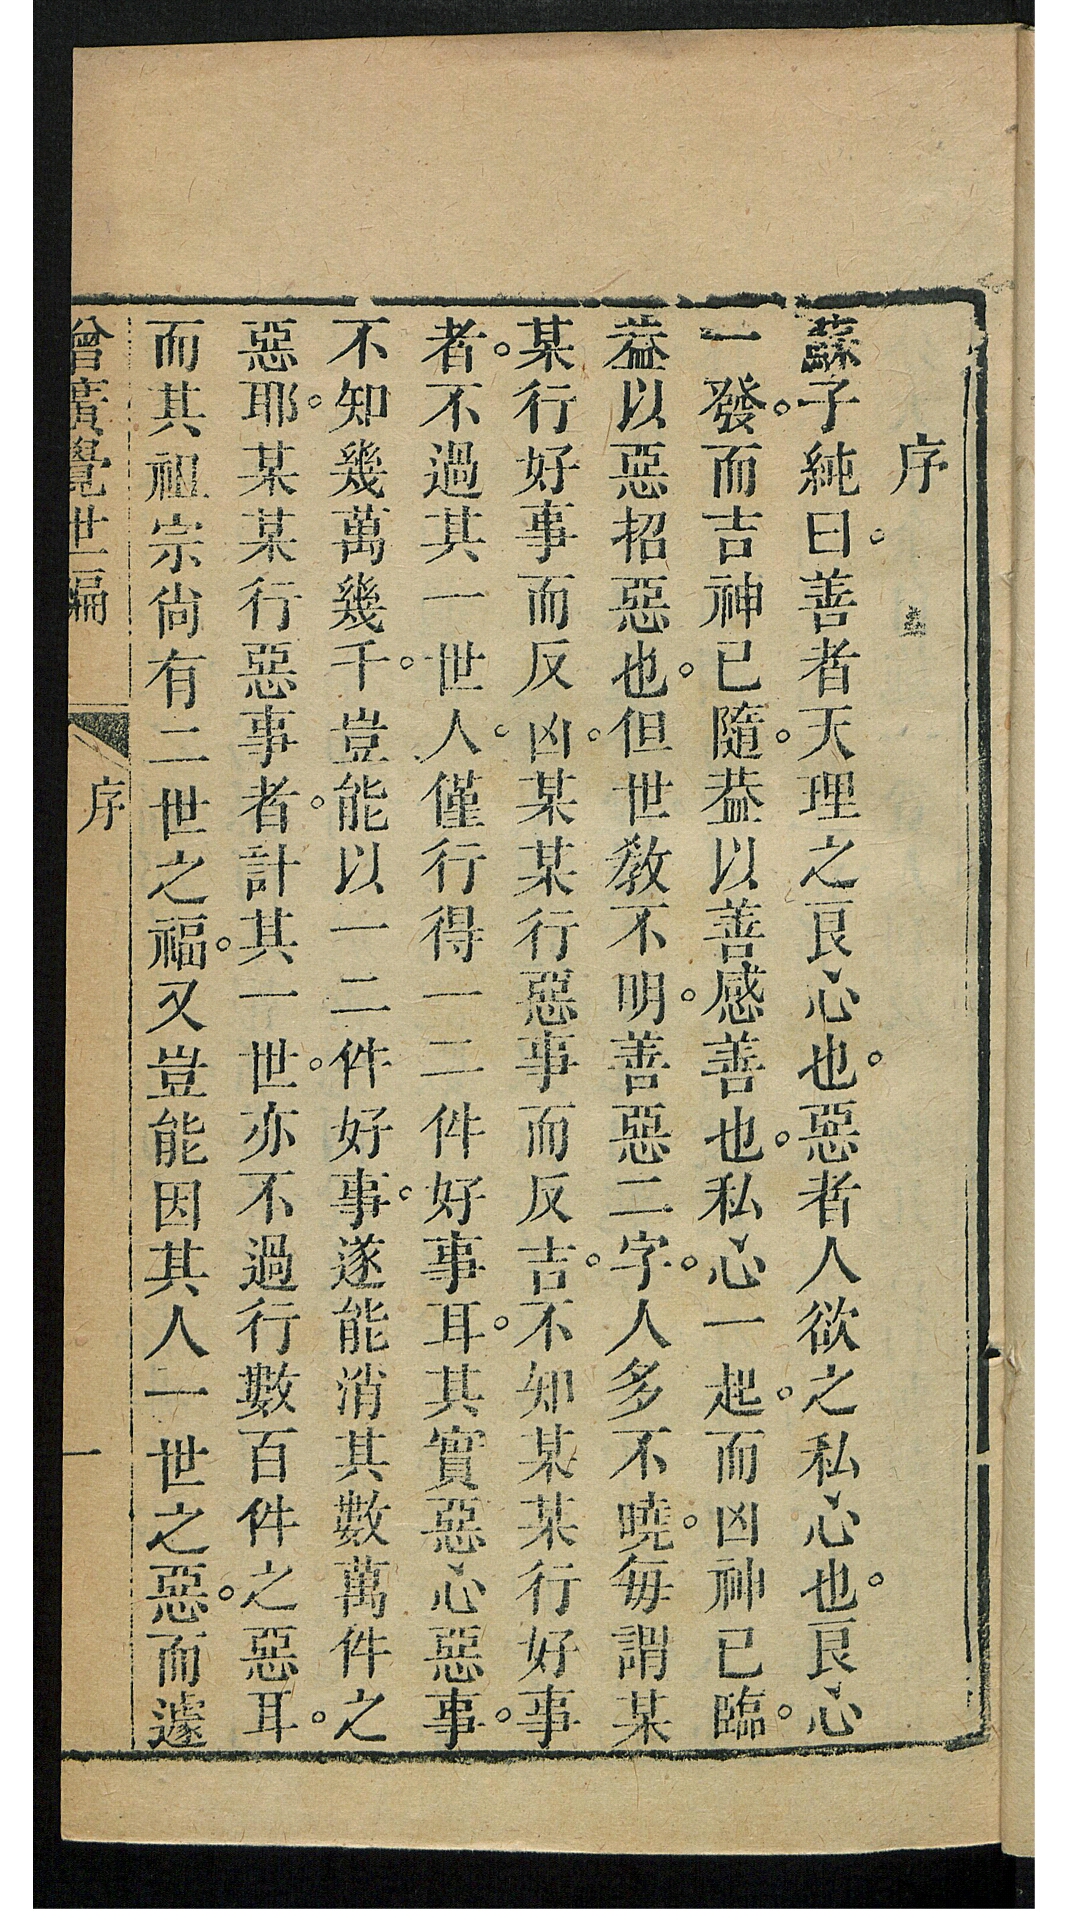 序
蘇子純曰。善者天理之良心也。惡者人欲之私心也。良心
一發。而吉神已隨。葢以善感善也。私心一起。而凶神已臨。
葢以惡招惡也。但世教不明。善惡二字。人多不曉。每謂某
某行好事而反凶。某某行惡事而反吉。不知某某行好事
者。不過其一世人。僅行得一二件好事耳。其實惡心惡事。
不知幾萬幾千。豈能以一二件好事。遂能消其數萬件之
惡耶。某某行惡事者。計其一世。亦不過行數百件之惡耳。
而其祖宗尙有二世之福。又豈能因其人一世之惡。而遽
增廣覺世編 序 一